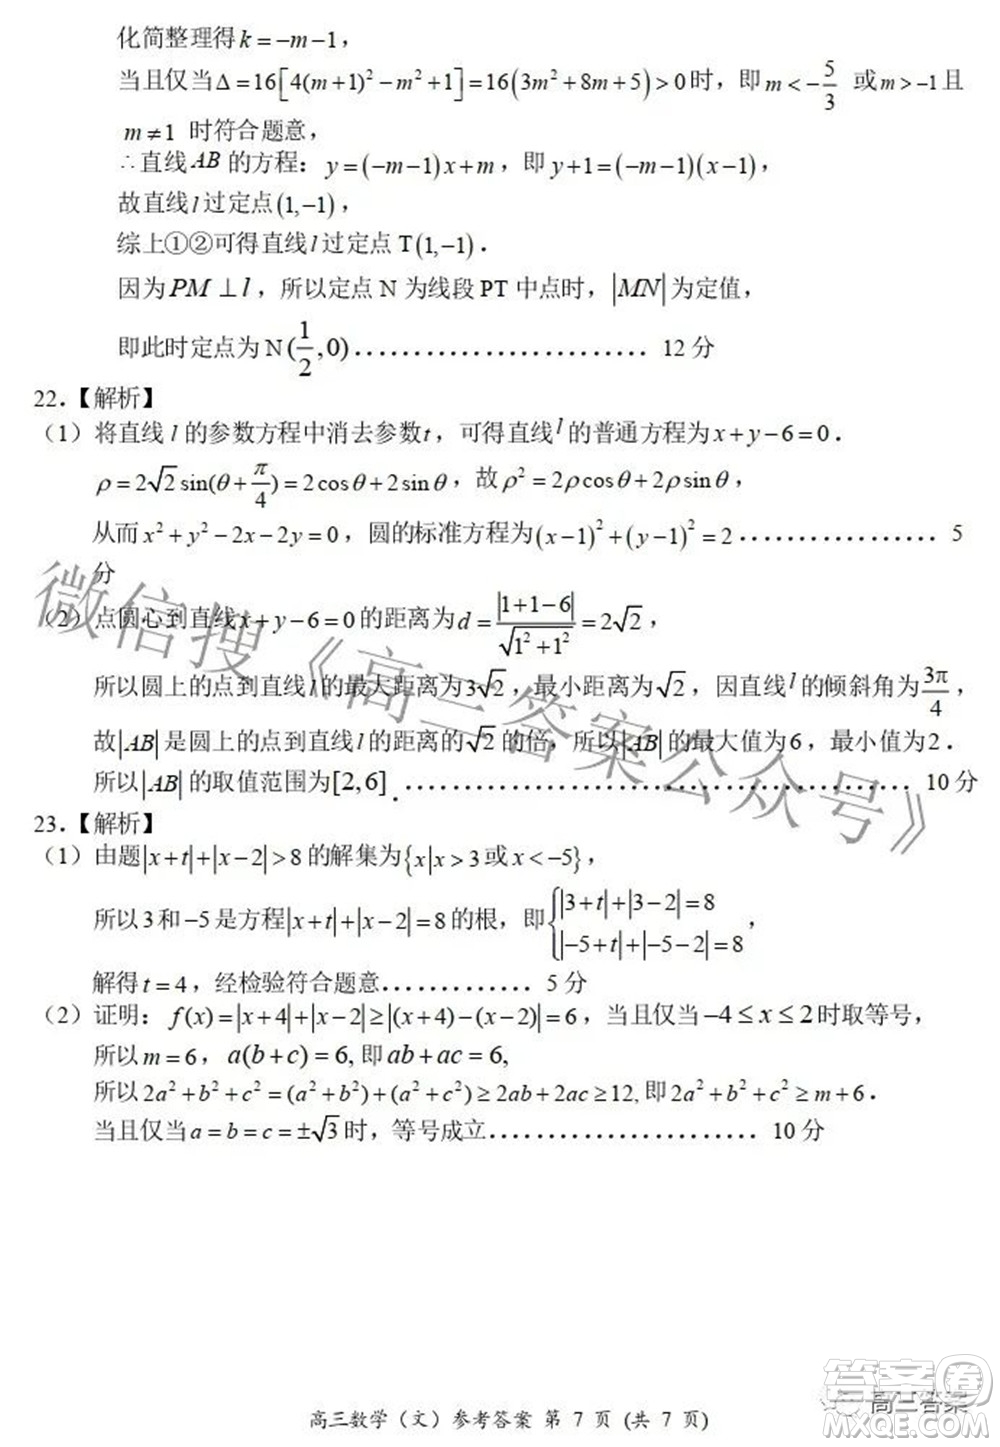 化简整理得k=-m-1，
当且仅当Δ=16[4(m+1)²-m²+1]=16(3m²+8m+5)>0时，即m<-5/3 或m>-1且
m≠1 时符合题意，
∴直线AB的方程：y=(-m-1)x+m，即y+1=(-m-1)(x-1)，
故直线l过定点(1,-1)，
综上①②可得直线l过定点T(1,-1)．
因为PM⊥l，所以定点N为线段PT中点时，|MN|为定值，
即此时定点为N(1/2,0)………………………12分
22．【解析】
（1）将直线l的参数方程中消去参数t，可得直线l的普通方程为x+y-6=0．
ρ=2√2sin(θ+π/4)=2cosθ+2sinθ，故ρ²=2ρcosθ+2ρsinθ，
从而x²+y²-2x-2y=0，圆的标准方程为(x-1)²+(y-1)²=2………………5
分
（2）点圆心到直线x+y-6=0的距离为d=|1+1-6|/√(1²+1²)=2√2，
所以圆上的点到直线l的最大距离为3√2，最小距离为√2，因直线l的倾斜角为3π/4，
故|AB|是圆上的点到直线l的距离的√2的倍，所以|AB|的最大值为6，最小值为2．
所以|AB|的取值范围为[2,6]．………………………………………10分
23．【解析】
（1）由题|x+t|+|x-2|>8的解集为{x|x>3或x<-5}，
所以3和-5是方程|x+t|+|x-2|=8的根，即{|3+t|+|3-2|=8
|-5+t|+|-5-2|=8，
解得t=4，经检验符合题意……………5分
（2）证明：f(x)=|x+4|+|x-2|≥|(x+4)-(x-2)|=6，当且仅当-4≤x≤2时取等号，
所以m=6，a(b+c)=6,即ab+ac=6,
所以2a²+b²+c²=(a²+b²)+(a²+c²)≥2ab+2ac≥12,即2a²+b²+c²≥m+6．
当且仅当a=b=c=±√3时，等号成立……………………10分
微信搜《高三答案公众号》
高三答案
答案圈
MXQE.COM
高三数学（文）参考答案 第 7 页 (共 7 页)